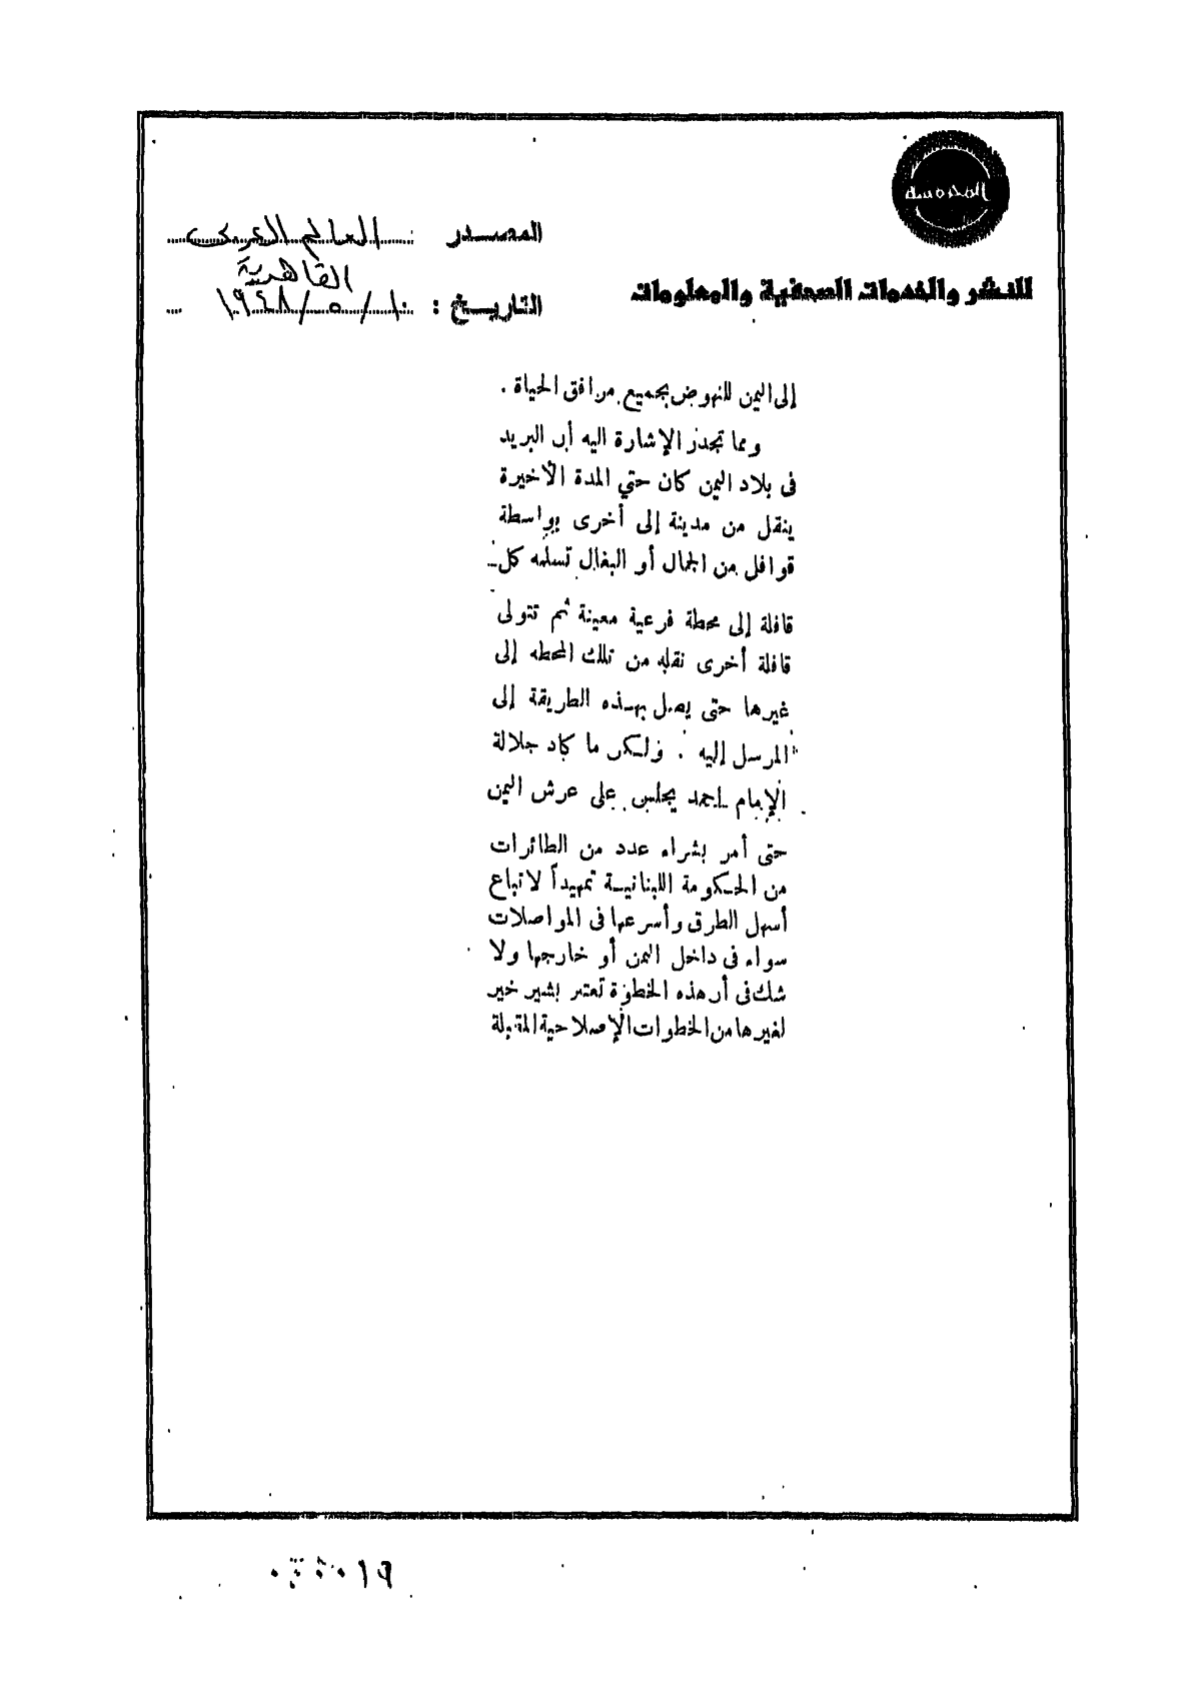 المحروسة
للنشر والخدمات الصحفية والمعلومات
المصدر : العالم العربى
القاهرية
التاريخ : ١٠/٥/١٩٤٨
إلى اليمن للنهوض بجميع مرافق الحياة .
ومما تجدر الإشارة اليه أن البريد
فى بلاد اليمن كان حتي المدة الأخيرة
ينقل من مدينة إلى أخرى بواسطة
قوافل من الجمال أو البغال تسلمه كل
قافلة إلى محطة فرعية معينة ثم تتولى
قافلة أخرى نقله من تلك المحطه إلى
غيرها حتى يصل بهذه الطريقة إلى
المرسل إليه . ولكن ما كاد جلالة
الإمام احمد يجلس على عرش اليمن
حتى أمر بشراء عدد من الطائرات
من الحكومة اللبنانية تمهيداً لاتباع
أسهل الطرق وأسرعها فى المواصلات
سواء فى داخل اليمن أو خارجها ولا
شك فى أن هذه الخطوة تعتبر بشير خير
لغيرها من الخطوات الإصلاحية المقبلة